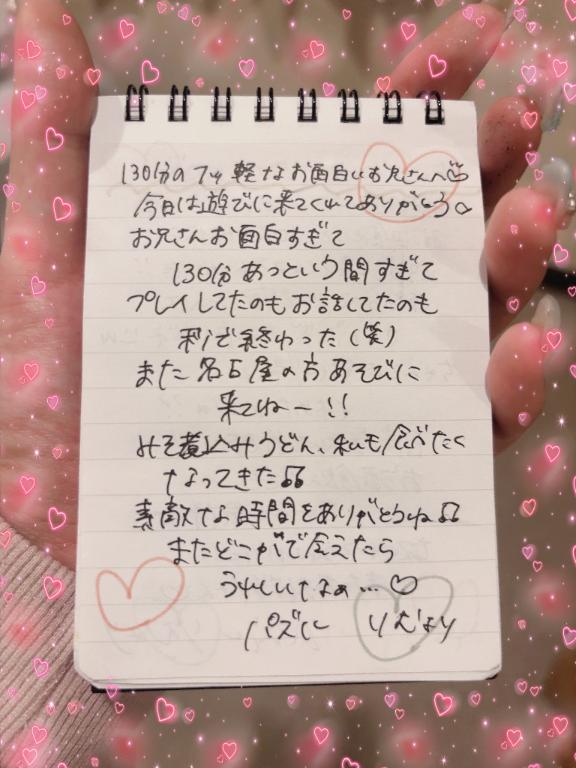 130分のフッ軽なお面白いお兄さんへ♡
今日は遊びに来てくれてありがとう。
お兄さんお面白すぎて
130分あっという間すぎて
プレイしてたのもお話してたのも
秒で終わった(笑)
また名古屋の方あそびに
来てねー!!
みそ煮込みうどん、私も食べたく
なってきた♫
素敵な時間をありがとうね♫
またどこかで会えたら
うれしいなぁ…♡
パズル りむより